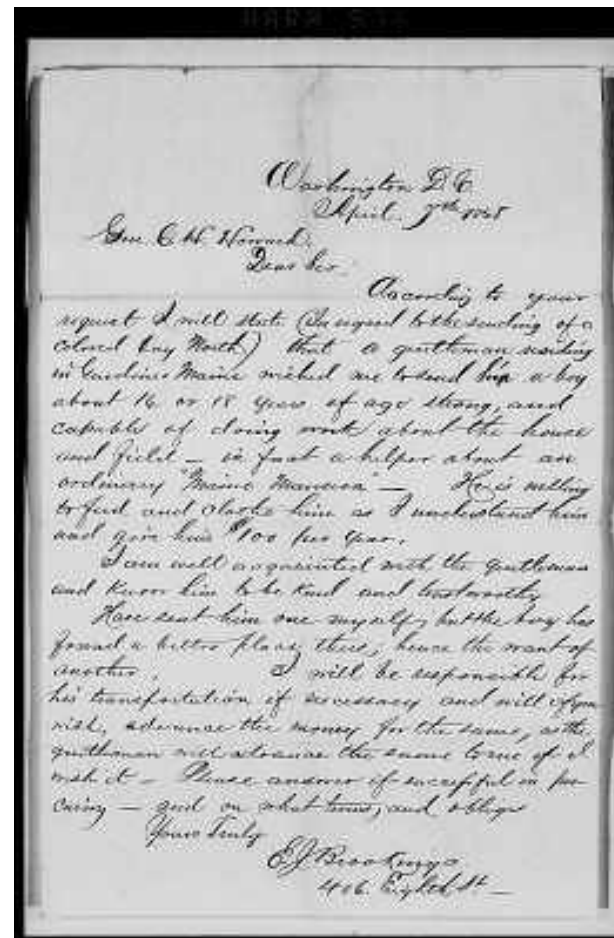 Washington D.C.
April 7th 1868
Gen. C. H. Howard,
Dear Sir.
According to your
request I will state (In regard to the sending of a
colored boy North) that a gentleman residing
in Gardiner Maine wished me to send him a boy
about 16 or 18 years of age strong, and
capable of doing work about the house
and field – in fact a helper about an
ordinary "Maine Mansion" – He is willing
to feed and clothe him as I understand him
and give him $100 per year.
I am well acquainted with the gentleman
and know him to be kind and trustworthy
Have sent him one myself, but the boy has
found a better place there, hence the want of
another. I will be responsible for
his transportation if necessary and will if you
wish, advance the money for the same, as the
gentleman will advance the same to me if I
wish it – Please answer if successful in pro-
curing – and on what terms, and oblige
Yours Truly
E J Brookings
406 Eighth St –